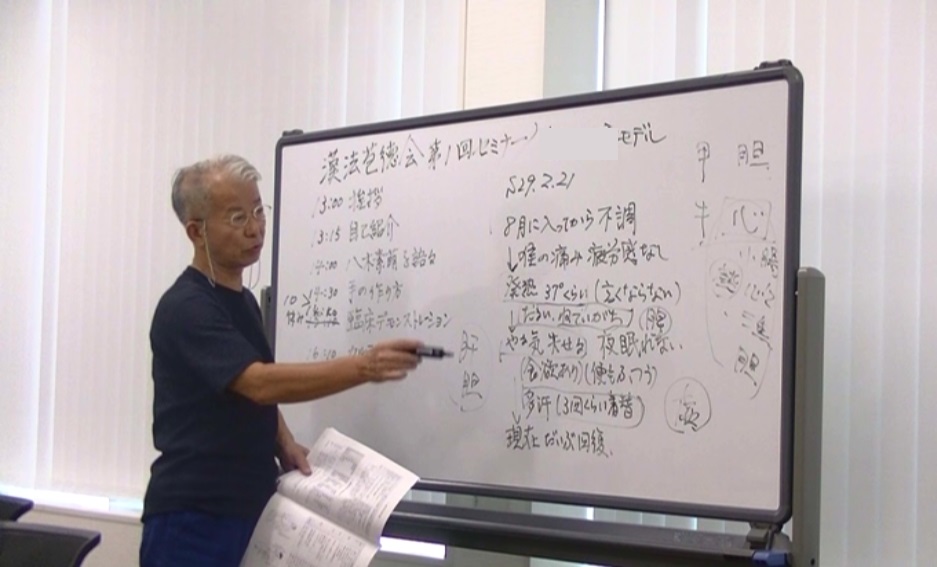 漢法苞徳会第1回セミナー
モデル
13:00 挨拶
13:15 自己紹介
14:00 八木素萌を語る
14:30 手の作り方
10
休み
臨床デモンストレーション
16:10
肝
胆
S29.2.21
8月に入ってから不調
↓喉の痛み 疲労感なし
発熱 37°くらい(高くならない)
↓だるい、
やる気失せる 夜眠れない
食欲あり(便もふつう)
多汗(3回くらい着替)
↓
現在 だいぶ回復
甲 胆
心
小腸